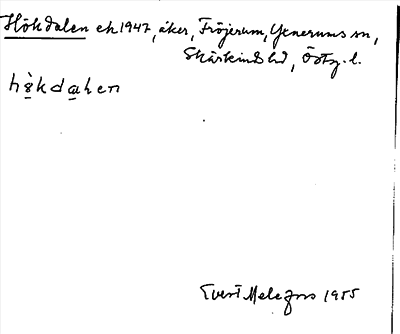 Hökdalen ek 1947, åker, Fröjerum, Yxnerums sn,
Skärkinds hd, Östg. l.
hö̀kdaḷen
Evert Melefors 1955